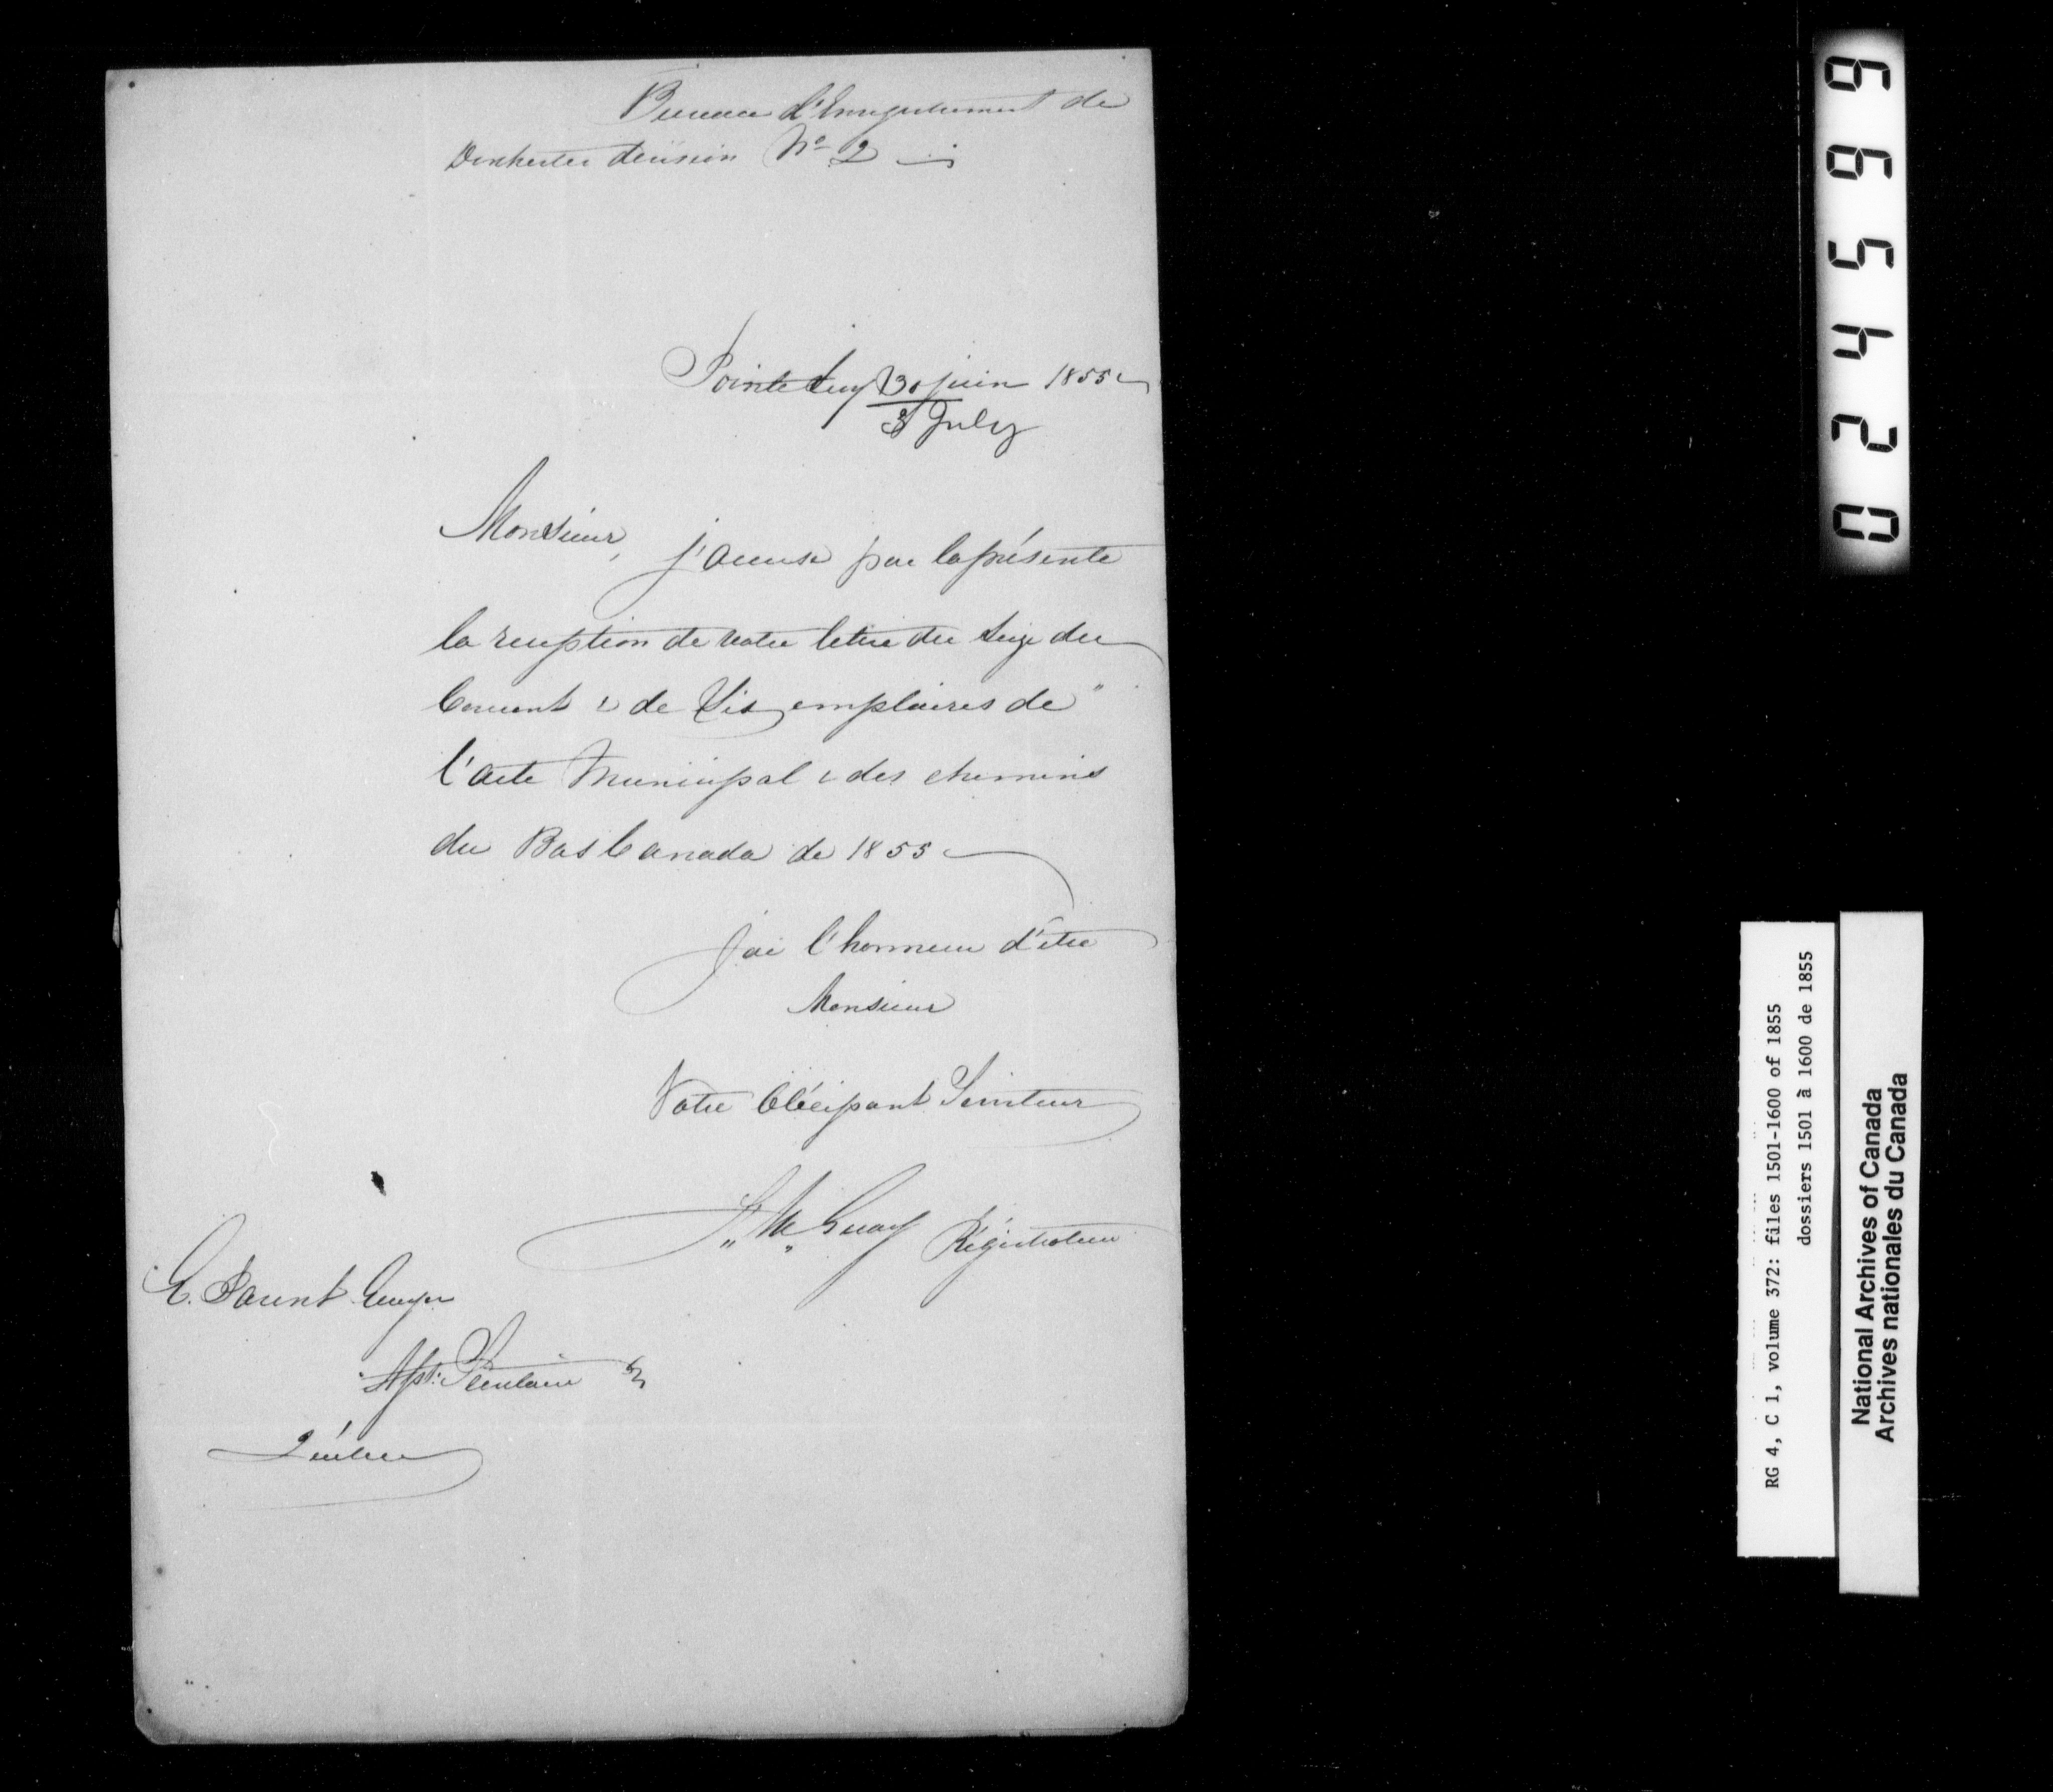 Bureau d'Enregistrement de
Dorchester division No 2
Pointe Levy 30 juin 1855
3 July
Monsieur,
j'accuse par la présente
la reception de votre lettre du seize du
Courant & de Six emplaires de
l'acte Municipal & des chemins
du Bas Canada de 1855
J'ai l'honneur d'être
Monsieur
Votre Obéissant Serviteur
Guay Régistrateur
E. Parent Ecuyer
Asst. Secrétaire &
Québec
024566
RG 4, C 1, volume 372: files 1501-1600 of 1855
dossiers 1501 à 1600 de 1855
National Archives of Canada
Archives nationales du Canada